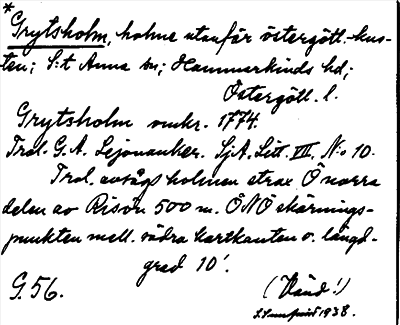 *
Grytsholm, holme utanför östergötl.-kus-
ten; S:t Anna sn; Hammarkinds hd;
Östergötl. l.
Grytsholm omkr. 1774.
Trol. G. A. Lejonanker. SjA. Litt. VII. N:o 10.
Trol. avsågs holmen strax Ö norra
delen av Risön 500 m. ÖNÖ skärnings-
punkten mell. södra kartkanten o. längd-
grad 10'.
G. 56. (Vänd!)
1938.